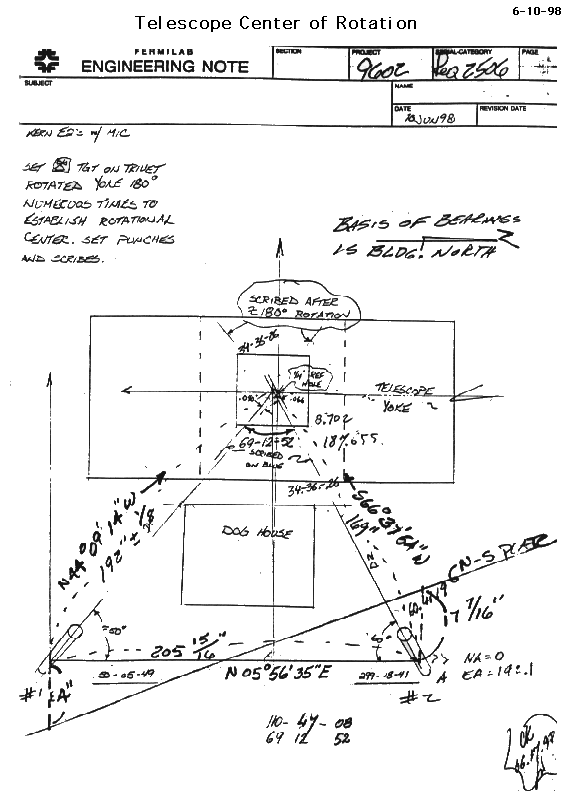 6-10-98
Telescope Center of Rotation
FERMILAB
ENGINEERING NOTE
SECTION
PROJECT
9602
SERIAL-CATEGORY
Req 2506
PAGE
SUBJECT
NAME
DATE
10 JUN 98
REVISION DATE
KERN E2's w/ MIC
SET TGT ON TRIVET
ROTATED YOKE 180°
NUMEROUS TIMES TO
ESTABLISH ROTATIONAL
CENTER. SET PUNCHES
AND SCRIBES.
BASIS OF BEARINGS
IS BLDG. NORTH
SCRIBED AFTER
180° ROTATION
34-36-26
1/4" REF
HOLE
TELESCOPE
YOKE
8.702
187.655
69-12-52
SCRIBED
ON BLDG
34-36-26
N44°09'14"W
192" ± 1/8
S66°37'54"W
169"
DOG HOUSE
N-S PLATE
17 7/16"
205 15/16"
N05°56'35"E
50-05-49
299-18-41
#1
"A"
#2
A
110-47-08
69 12 52